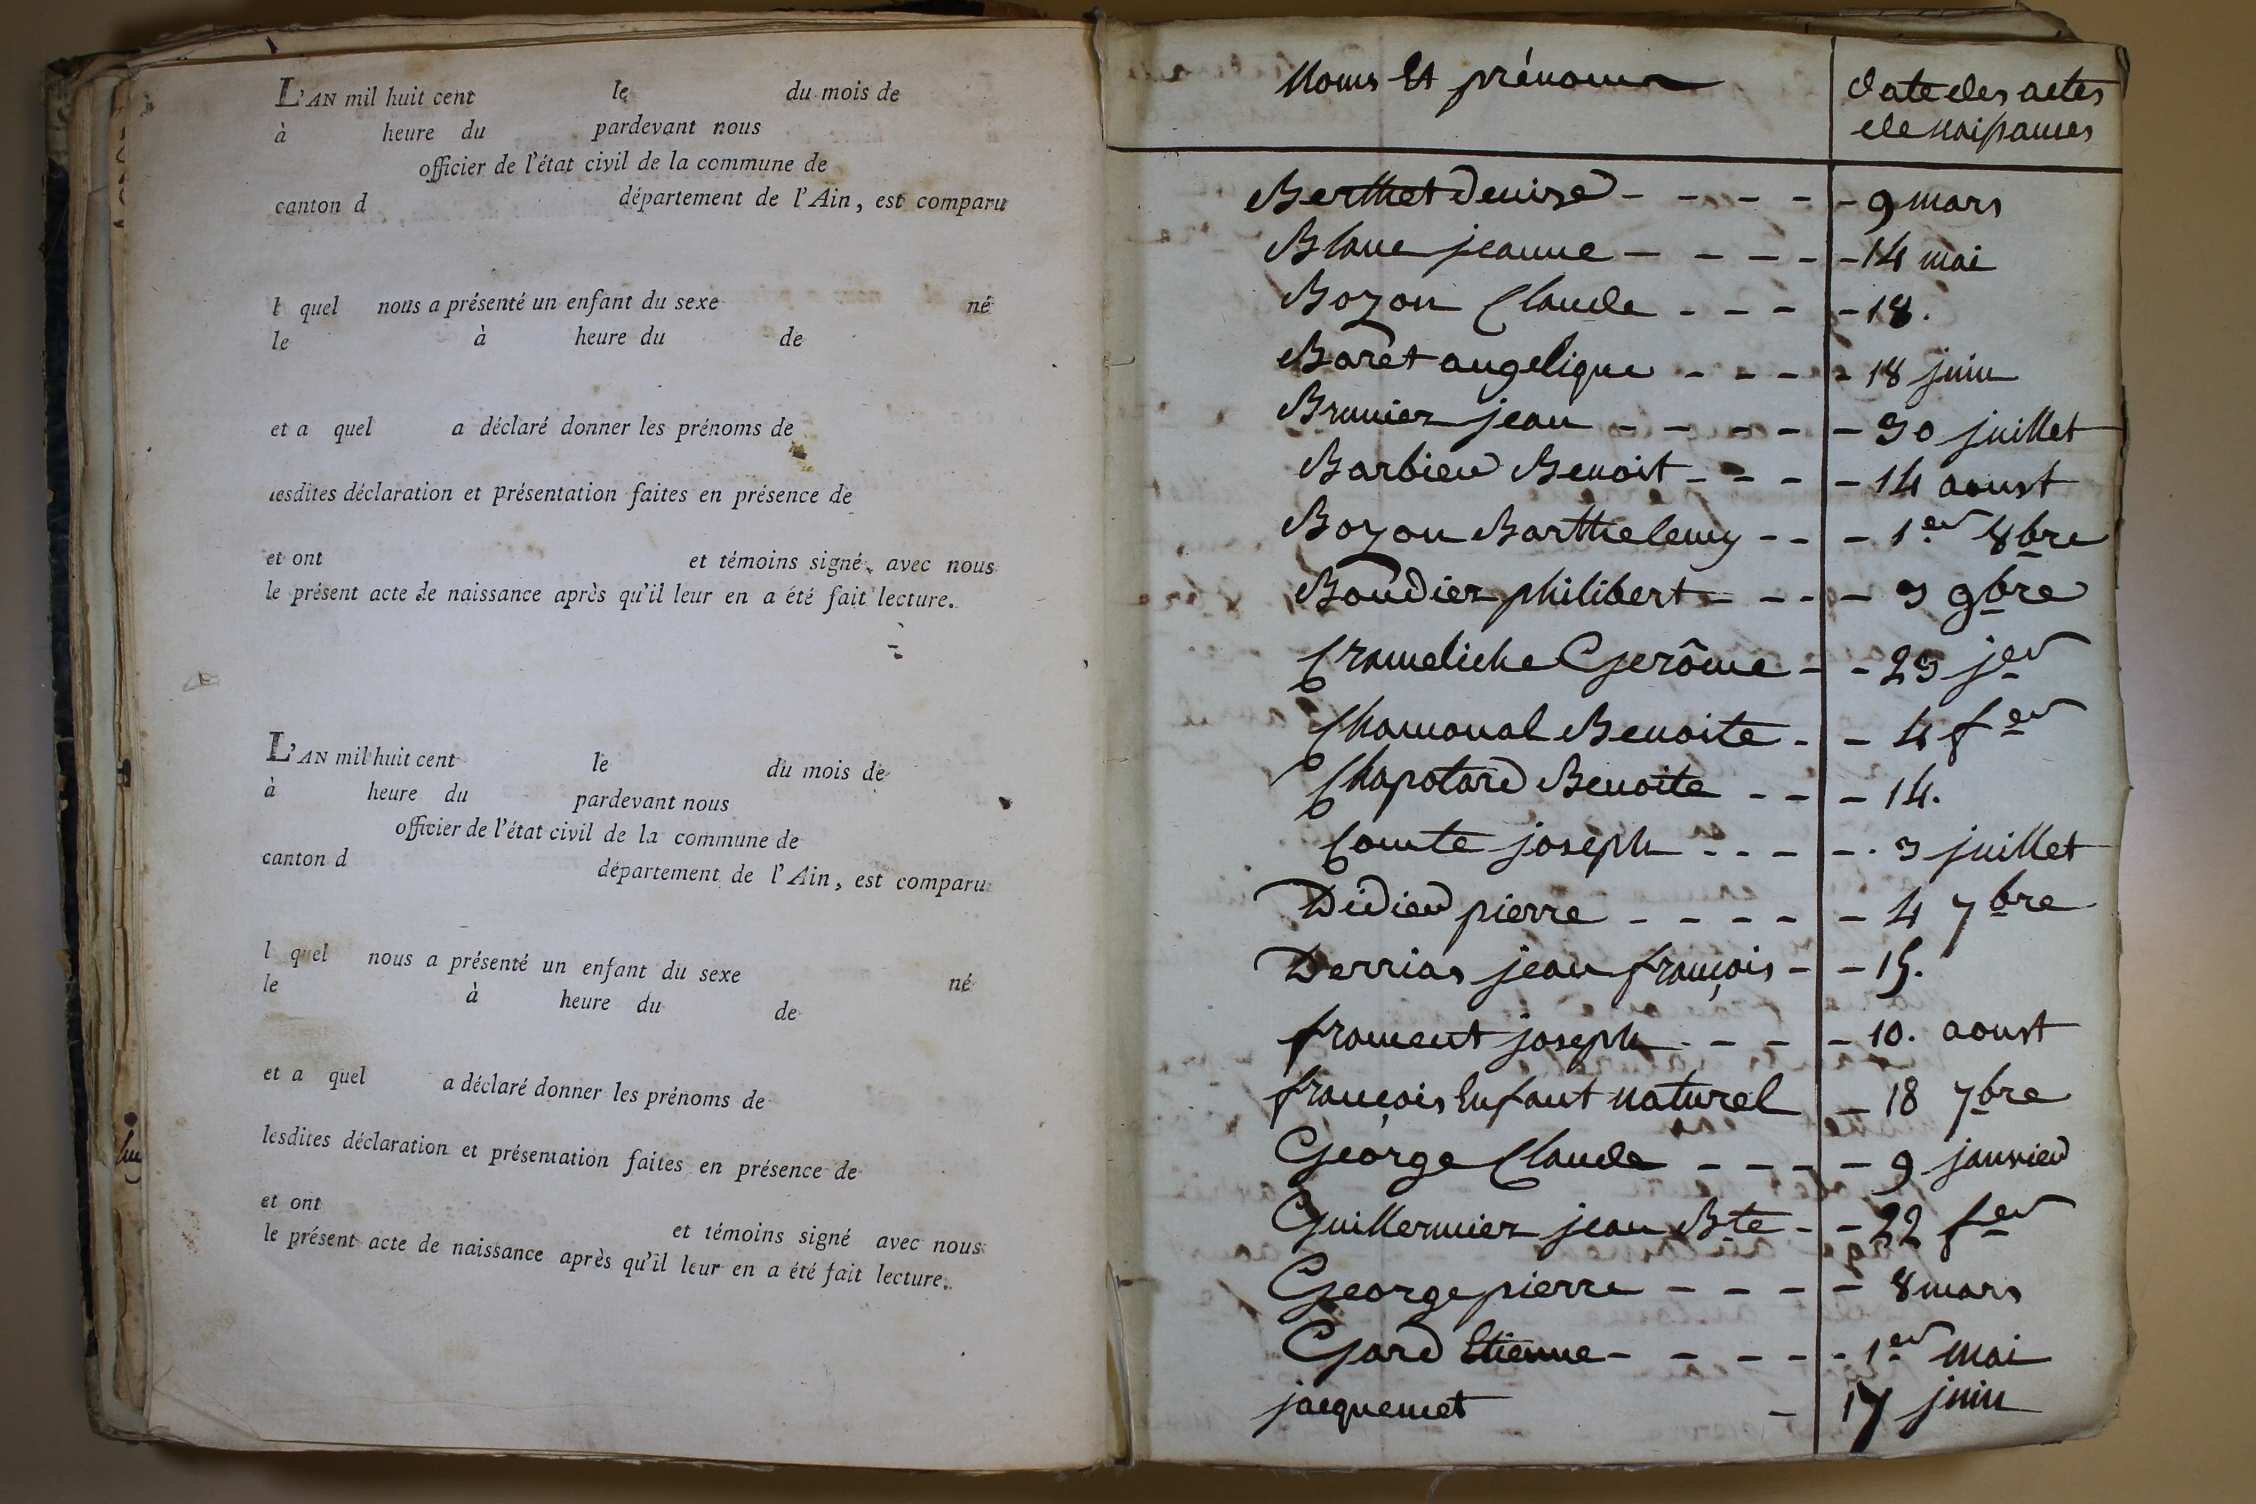 L'AN mil huit cent le du mois de
à heure du pardevant nous
officier de l'état civil de la commune de
canton d département de l'Ain, est comparu
l quel nous a présenté un enfant du sexe né
le à heure du de
et a quel a déclaré donner les prénoms de
lesdites déclaration et présentation faites en présence de
et ont et témoins signé avec nous
le présent acte de naissance après qu'il leur en a été fait lecture.
L'AN mil huit cent le du mois de
à heure du pardevant nous
officier de l'état civil de la commune de
canton d département de l'Ain, est comparu
l quel nous a présenté un enfant du sexe né
le à heure du de
et a quel a déclaré donner les prénoms de
lesdites déclaration et présentation faites en présence de
et ont et témoins signé avec nous
le présent acte de naissance après qu'il leur en a été fait lecture.
Noms Et prénoms date des actes
de naissances
Berthet Denise - - - - - 9 mars
Blanc jeanne - - - - - 14 mai
Bozon Claude - - - - 18.
Baret angelique - - - - 18 juin
Brunier jean - - - - - - 30 juillet
Barbier Benoit - - - - - 14 aoust
Bozon Barthelemy - - - 1er 8bre
Boudier philibert - - - - 3 9bre
Crameliche Gerôme - - 23 jer
Chamonal Benoite - - 4 fer
Chapotard Benoite - - - 14.
Comte joseph - - - - . 3 juillet
Didier pierre - - - - - 4 7bre
Derrias jean françois - - 15.
froment joseph - - - - 10. aoust
françois Enfant naturel - 18 7bre
George Claude - - - - - 9 janvier
Guillermier jean Bte - - 22 fer
George pierre - - - - - 8 mars
Gard Etienne - - - - - - 1er mai
jacquemet - 17 juin